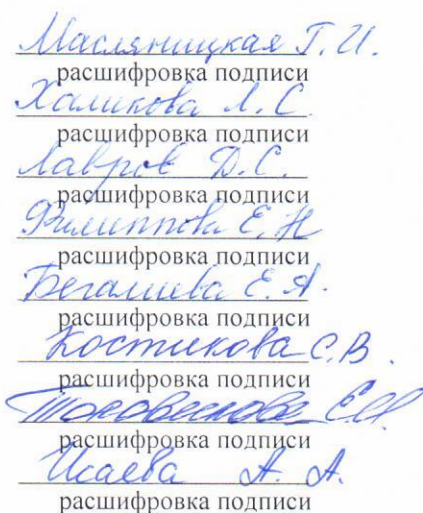 Масляницкая Т. И.
расшифровка подписи
Халикова Л. С.
расшифровка подписи
Лавров Д. С.
расшифровка подписи
Филиппова Е. Н
расшифровка подписи
Бегашева Е. А.
расшифровка подписи
Костикова С. В.
расшифровка подписи
расшифровка подписи
Исаева А. А.
расшифровка подписи